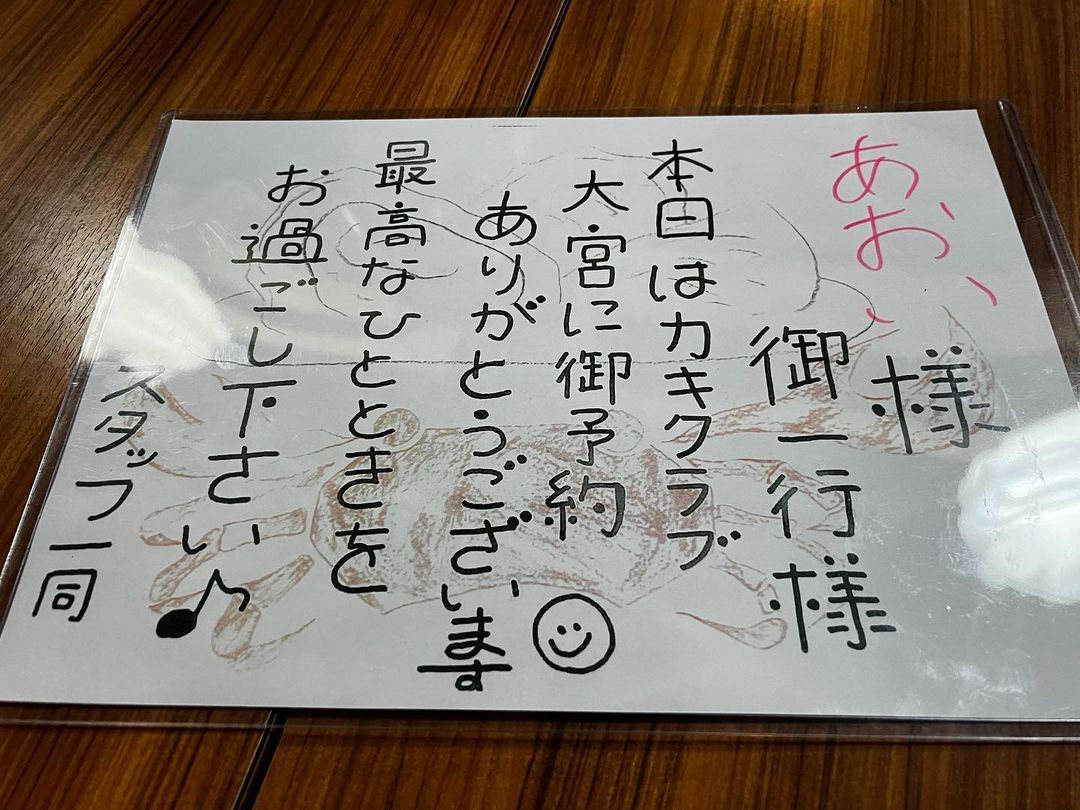 あおい様
御一行様
本日はカキクラブ
大宮に御予約
ありがとうございます
最高なひとときを
お過ごし下さい♪
スタッフ一同